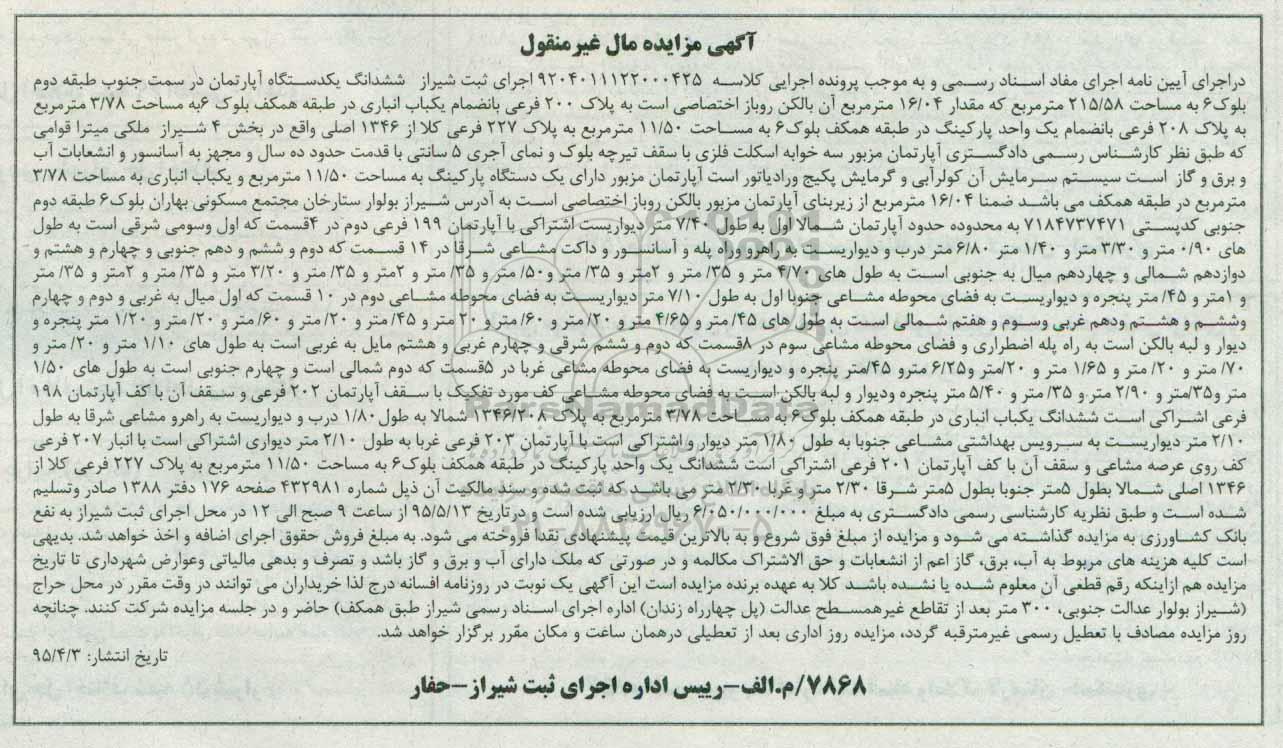 آگهی مزایده مال غیرمنقول
دراجرای آیین نامه اجرای مفاد اسناد رسمی و به موجب پرونده اجرایی کلاسه ۹۲۰۴۰۱۱۱۲۲۰۰۰۴۲۵ اجرای ثبت شیراز ششدانگ یکدستگاه آپارتمان در سمت جنوب طبقه دوم
بلوک۶ به مساحت ۲۱۵/۵۸ مترمربع که مقدار ۱۶/۰۴ مترمربع آن بالکن روباز اختصاصی است به پلاک ۲۰۰ فرعی بانضمام یکباب انباری در طبقه همکف بلوک ۶به مساحت ۳/۷۸ مترمربع
به پلاک ۲۰۸ فرعی بانضمام یک واحد پارکینگ در طبقه همکف بلوک۶ به مساحت ۱۱/۵۰ مترمربع به پلاک ۲۲۷ فرعی کلا از ۱۳۴۶ اصلی واقع در بخش ۴ شیراز ملکی میترا قوامی
که طبق نظر کارشناس رسمی دادگستری آپارتمان مزبور سه خوابه اسکلت فلزی با سقف تیرچه بلوک و نمای آجری ۵ سانتی با قدمت حدود ده سال و مجهز به آسانسور و انشعابات آب
و برق و گاز است سیستم سرمایش آن کولرآبی و گرمایش پکیج ورادیاتور است آپارتمان مزبور دارای یک دستگاه پارکینگ به مساحت ۱۱/۵۰ مترمربع و یکباب انباری به مساحت ۳/۷۸
مترمربع در طبقه همکف می باشد ضمنا ۱۶/۰۴ مترمربع از زیربنای آپارتمان مزبور بالکن روباز اختصاصی است به آدرس شیراز بولوار ستارخان مجتمع مسکونی بهاران بلوک۶ طبقه دوم
جنوبی کدپستی ۷۱۸۴۷۳۷۴۷۱ به محدوده حدود آپارتمان شمالا اول به طول ۷/۴۰ متر دیواریست اشتراکی با آپارتمان ۱۹۹ فرعی دوم در ۴قسمت که اول وسومی شرقی است به طول
های ۰/۹۰ متر و ۳/۳۰ متر و ۱/۴۰ متر ۶/۸۰ متر درب و دیواریست به راهرو وراه پله و آسانسور و داکت مشاعی شرقا در ۱۴ قسمت که دوم و ششم و دهم جنوبی و چهارم و هشتم و
دوازدهم شمالی و چهاردهم میال به جنوبی است به طول های ۴/۷۰ متر و ۳۵/ متر و ۲متر و ۳۵/ متر و ۵۰/ متر و ۳۵/ متر و ۲متر و ۳۵/ متر و ۳/۲۰ متر و ۳۵/ متر و ۲متر و ۳۵/ متر
و ۱متر و ۴۵/ متر پنجره و دیواریست به فضای محوطه مشاعی جنوبا اول به طول ۷/۱۰ متر دیواریست به فضای محوطه مشاعی دوم در ۱۰ قسمت که اول میال به غربی و دوم و چهارم
وششم و هشتم ودهم غربی وسوم و هفتم شمالی است به طول های ۴۵/ متر و ۴/۶۵ متر و ۲۰/ متر و ۶۰/ متر و ۲۰ متر و ۴۵/ متر و ۲۰/ متر و ۶۰/ متر و ۲۰/ متر و ۱/۲۰ متر پنجره و
دیوار و لبه بالکن است به راه پله اضطراری و فضای محوطه مشاعی سوم در ۸قسمت که دوم و ششم شرقی و چهارم غربی و هشتم مایل به غربی است به طول های ۱/۱۰ متر و ۲۰/ متر و
۷۰/ متر و ۲۰/ متر و ۱/۶۵ متر و ۲۰/متر و۶/۲۵ مترو ۴۵/متر پنجره و دیواریست به فضای محوطه مشاعی غربا در ۵قسمت که دوم شمالی است و چهارم جنوبی است به طول های ۱/۵۰
متر و۳۵/متر و ۲/۹۰ متر و ۳۵/ متر و ۵/۴۰ متر پنجره ودیوار و لبه بالکن است به فضای محوطه مشاعی کف مورد تفکیک با سقف آپارتمان ۲۰۲ فرعی و سقف آن با کف آپارتمان ۱۹۸
فرعی اشتراکی است ششدانگ یکباب انباری در طبقه همکف بلوک۶ به مساحت ۳/۷۸ مترمربع به پلاک ۱۳۴۶/۲۰۸ شمالا به طول ۱/۸۰ درب و دیواریست به راهرو مشاعی شرقا به طول
۲/۱۰ متر دیواریست به سرویس بهداشتی مشاعی جنوبا به طول ۱/۸۰ متر دیوار و اشتراکی است با آپارتمان ۲۰۳ فرعی غربا به طول ۲/۱۰ متر دیواری اشتراکی است با انبار ۲۰۷ فرعی
کف روی عرصه مشاعی و سقف آن با کف آپارتمان ۲۰۱ فرعی اشتراکی است ششدانگ یک واحد پارکینگ در طبقه همکف بلوک۶ به مساحت ۱۱/۵۰ مترمربع به پلاک ۲۲۷ فرعی کلا از
۱۳۴۶ اصلی شمالا بطول ۵متر جنوبا بطول ۵متر شرقا ۲/۳۰ متر و غربا ۲/۳۰ متر می باشد که ثبت شده و سند مالکیت آن ذیل شماره ۴۳۲۹۸۱ صفحه ۱۷۶ دفتر ۱۳۸۸ صادر وتسلیم
شده است و طبق نظریه کارشناسی رسمی دادگستری به مبلغ ۶/۰۵۰/۰۰۰/۰۰۰ ریال ارزیابی شده است و درتاریخ ۹۵/۵/۱۳ از ساعت ۹ صبح الی ۱۲ در محل اجرای ثبت شیراز به نفع
بانک کشاورزی به مزایده گذاشته می شود و مزایده از مبلغ فوق شروع و به بالاترین قیمت پیشنهادی نقدا فروخته می شود. به مبلغ فروش حقوق اجرای اضافه و اخذ خواهد شد. بدیهی
است کلیه هزینه های مربوط به آب، برق، گاز اعم از انشعابات و حق الاشتراک مکالمه و در صورتی که ملک دارای آب و برق و گاز باشد و تصرف و بدهی مالیاتی وعوارض شهرداری تا تاریخ
مزایده هم ازاینکه رقم قطعی آن معلوم شده یا نشده باشد کلا به عهده برنده مزایده است این آگهی یک نوبت در روزنامه افسانه درج لذا خریداران می توانند در وقت مقرر در محل حراج
(شیراز بولوار عدالت جنوبی، ۳۰۰ متر بعد از تقاطع غیرهمسطح عدالت (پل چهارراه زندان) اداره اجرای اسناد رسمی شیراز طبق همکف) حاضر و در جلسه مزایده شرکت کنند. چنانچه
روز مزایده مصادف با تعطیل رسمی غیرمترقبه گردد، مزایده روز اداری بعد از تعطیلی درهمان ساعت و مکان مقرر برگزار خواهد شد.
تاریخ انتشار: ۹۵/۴/۳
۷۸۶۸/م.الف-رییس اداره اجرای ثبت شیراز-حفار
ParsNamadData
۰۲۱-۸۸۳۴۹۶۷۰-۵